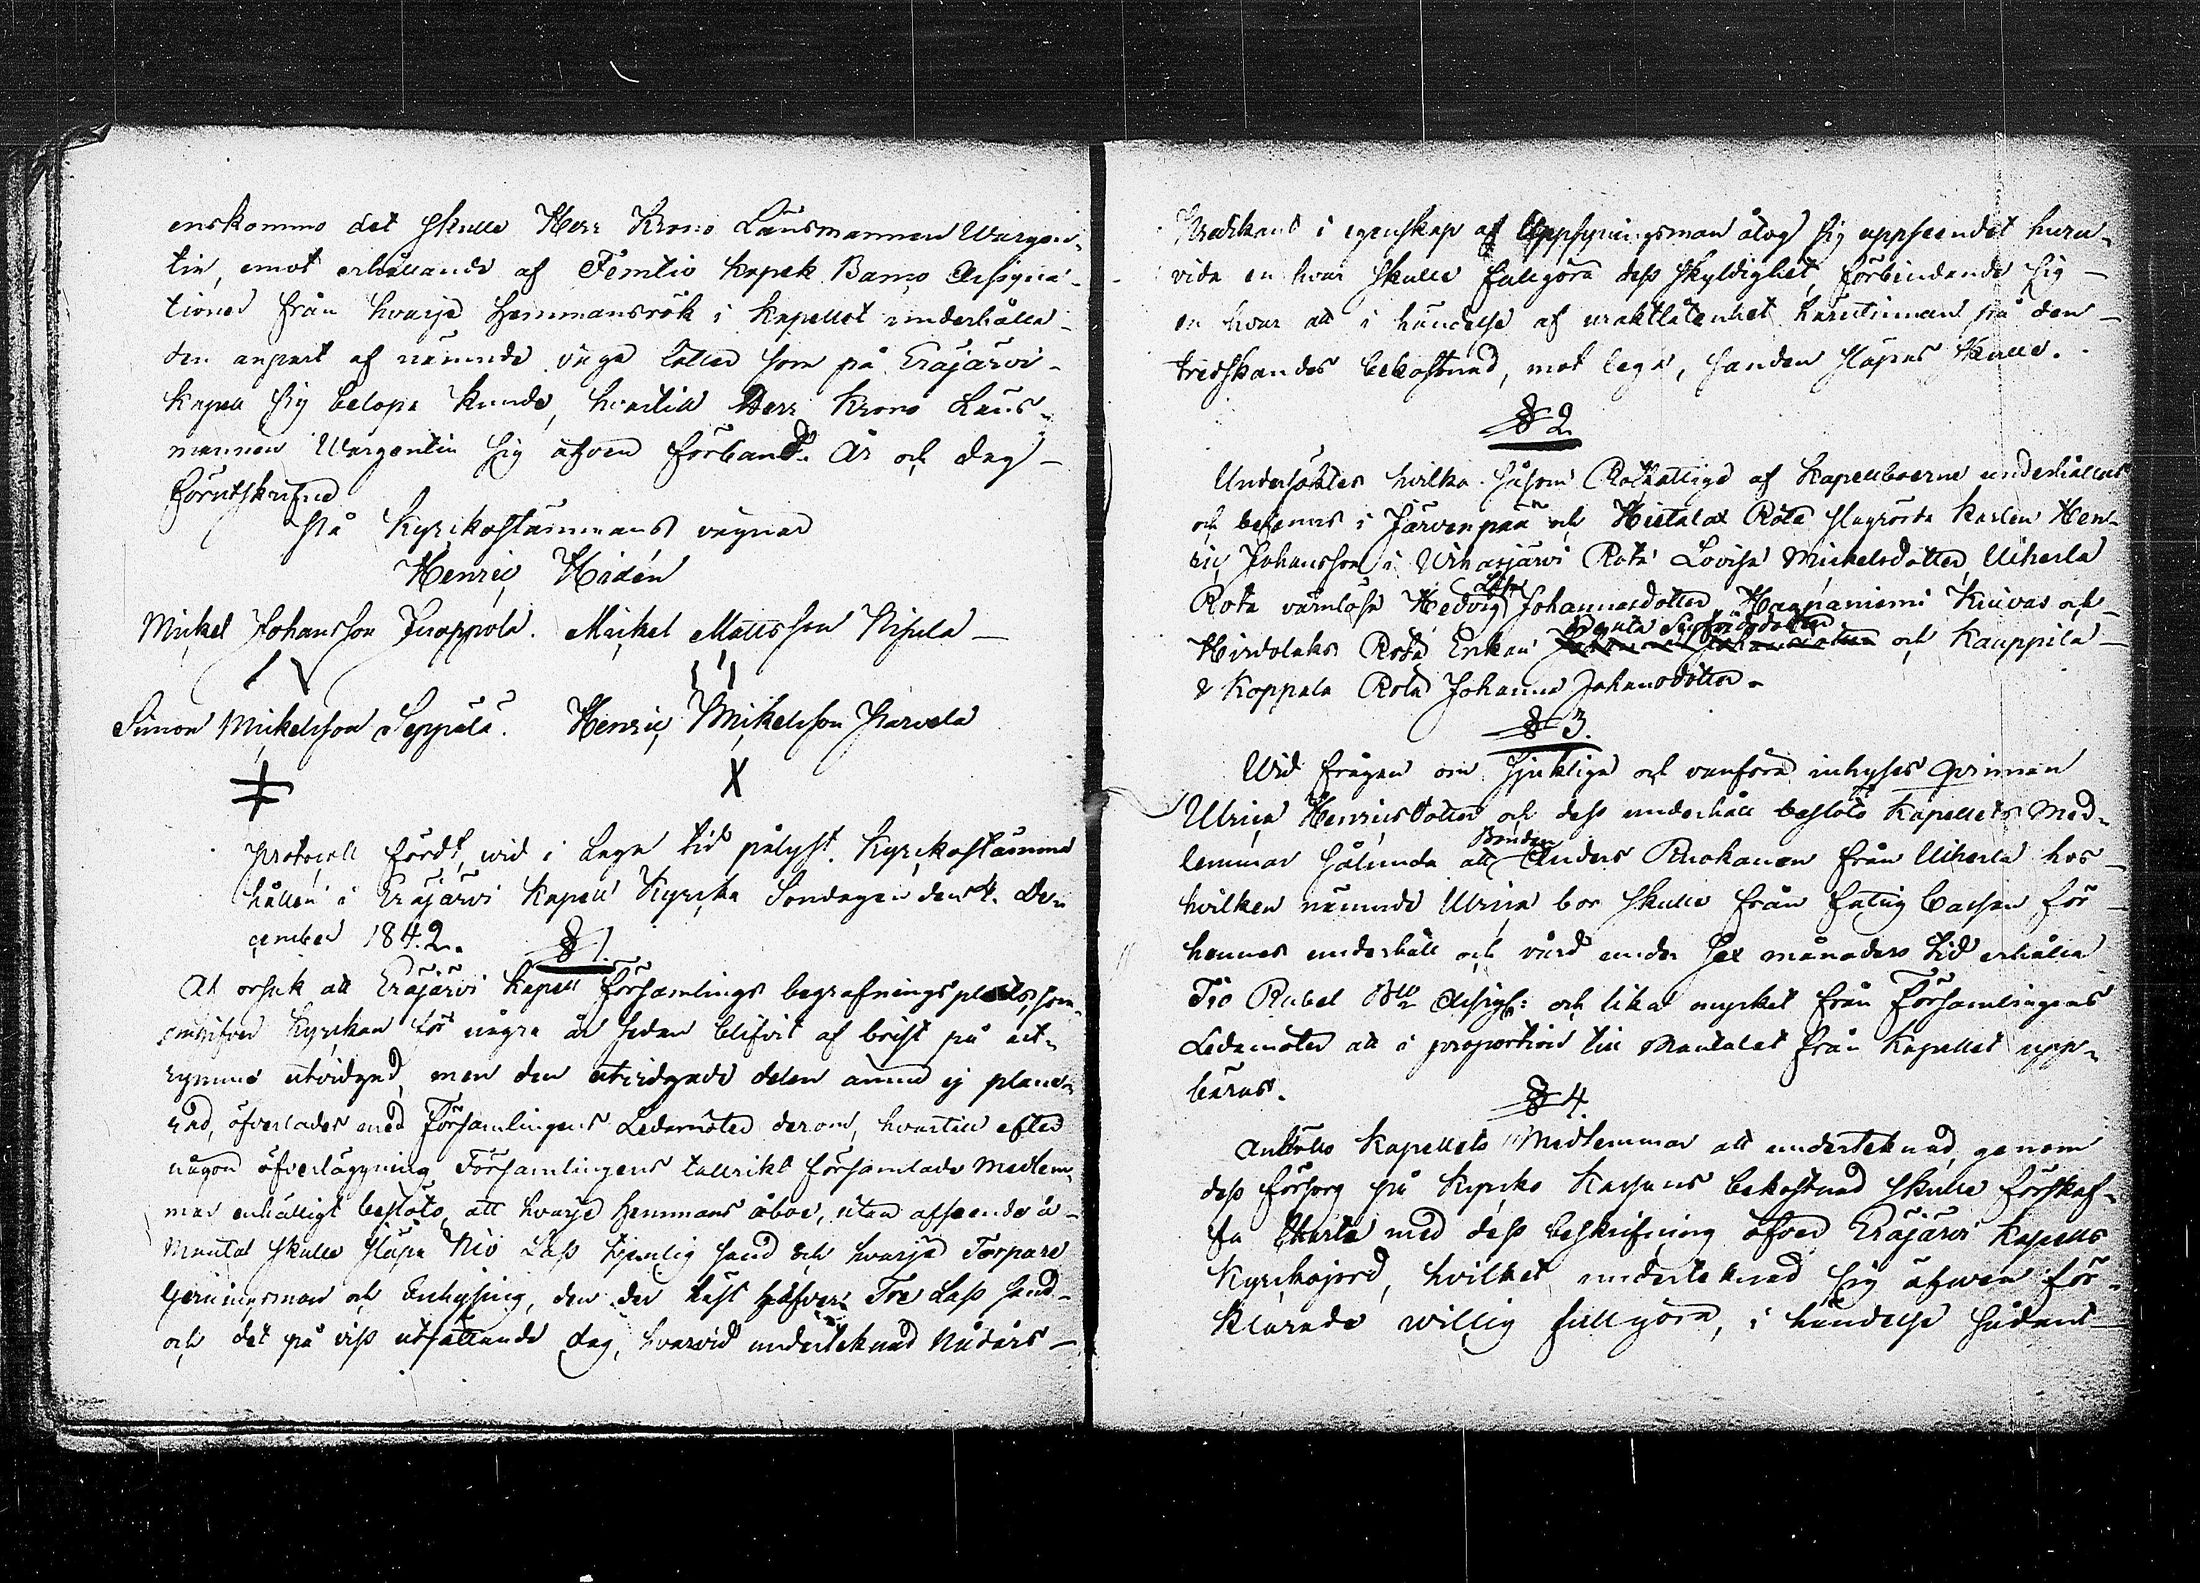 enskommo det skulle Herr Krono Länsmannen Wargen-
tin, emot erhållande af Femtio Kopek Banco Assigna-
tioner från hvarje Hemmansrök i Kapellet underhålla
den anpart af nämnde väga lotter som på Eräjärvi
Kapell sig belöpa kunde, hvartill Herr Krono Läns-
mannen Wargentin sig äfven förband. År och dag
förutskrifne
På Kyrckostämmans vägnar
Henric Hidén
Mickel Johansson Juoppola. Mickel Mattsson Nisula
Simon Mickelsson Seppälä. Henric Mickelsson Parvela
Protocoll fördt, wid i Laga tid pålyst Kyrckostämma
hållen i Eräjärvi Kapell Kyrcka Söndagen den 4. De-
cember 1842.
§ 1.
Af orsak att Eräjärvi Kapell Församlings begrafningsplats, som
omgifver Kyrckan för några år sedan blifvit af brist på ut-
rymme utvidgad, men den utvidgade delen ännu ej plane-
rad, öfverlades med Församlingens Ledamöter derom, hvartill efter
någon öfverläggning Församlingens tallrikt församlade medlem-
mar enhälligt beslöto, att hvarje Hemmans åboe, utan afseende å
Mantal skulle släpa Nio Lass tjenlig sand och hvarje Torpare
Gerningsman och Inhysing, den der häst hafver Tre Lass sand
och det på viss utsättande dag, hvarvid undertecknad Nådårs-
Predikant i egenskap af Uppsyningsman åtog sig uppseendet huru-
vida en hvar skulle fullgöra dess skyldighet, förbindande sig
en hvar att i händelse af uraktlåtenhet härutinnan på den
tredskandes bekostnad, mot lega, sanden släpas skulle.
§ 2.
Undersöktes hvilka såsom Rothattige af Kapellboerne underhålles
och befanns i Järvenpää och Hietala Rota slagrörde Karlen Hen-
ric Johansson, i Vihasjärvi Rota Lovisa Mickelsdotter, Uiherla
Rota värnlösa Hedvig Johannesdotter Haapaniemi Kuivas och
Hirdolaks Rota Enkan Beata Sigfridsdotter och Kauppila
& Koppala Rota Johanna Johansdotter.
§ 3.
Wid frågan om sjukliga och vanföra inhyses Qvinnan
Ulrica Henricsdotter och dess underhåll beslöto Kapellets Med-
lemmar sålunda att Bonden Anders Ruokanen från Uiherla hos
hvilken nämnde Ulrica bor skulle från fattig Cassan för
hennes underhåll och vård under sex månaders tid erhålla
Tio Rubel Bco Assign: och lika mycket från Församlingens
Ledamöter att i proportion till Mantalet från Kapellet upp-
bäras.
§ 4.
Anhöllo Kapellets Medlemmar att undertecknad, genom
dess försorg på Kyrcko Kassans bekostnad skulle förskaf-
fa Charta med dess beskrifning öfver Eräjärvi Kapells
Kyrckojord, hvilket undertecknad sig äfwen för-
klarade willig fullgöra, i händelse sådant